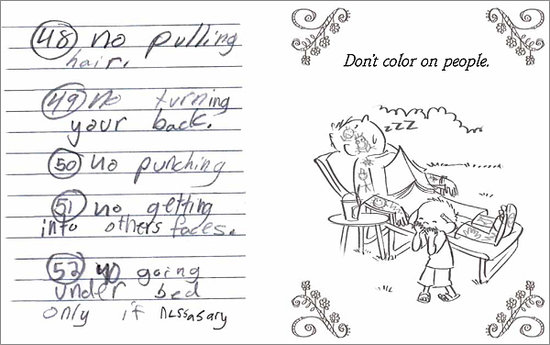 48 no pulling
hair.
49 no turning
your back.
50 no punching
51 no getting
into others faces.
52 no going
under bed
only if nessasary
Don't color on people.
zzz